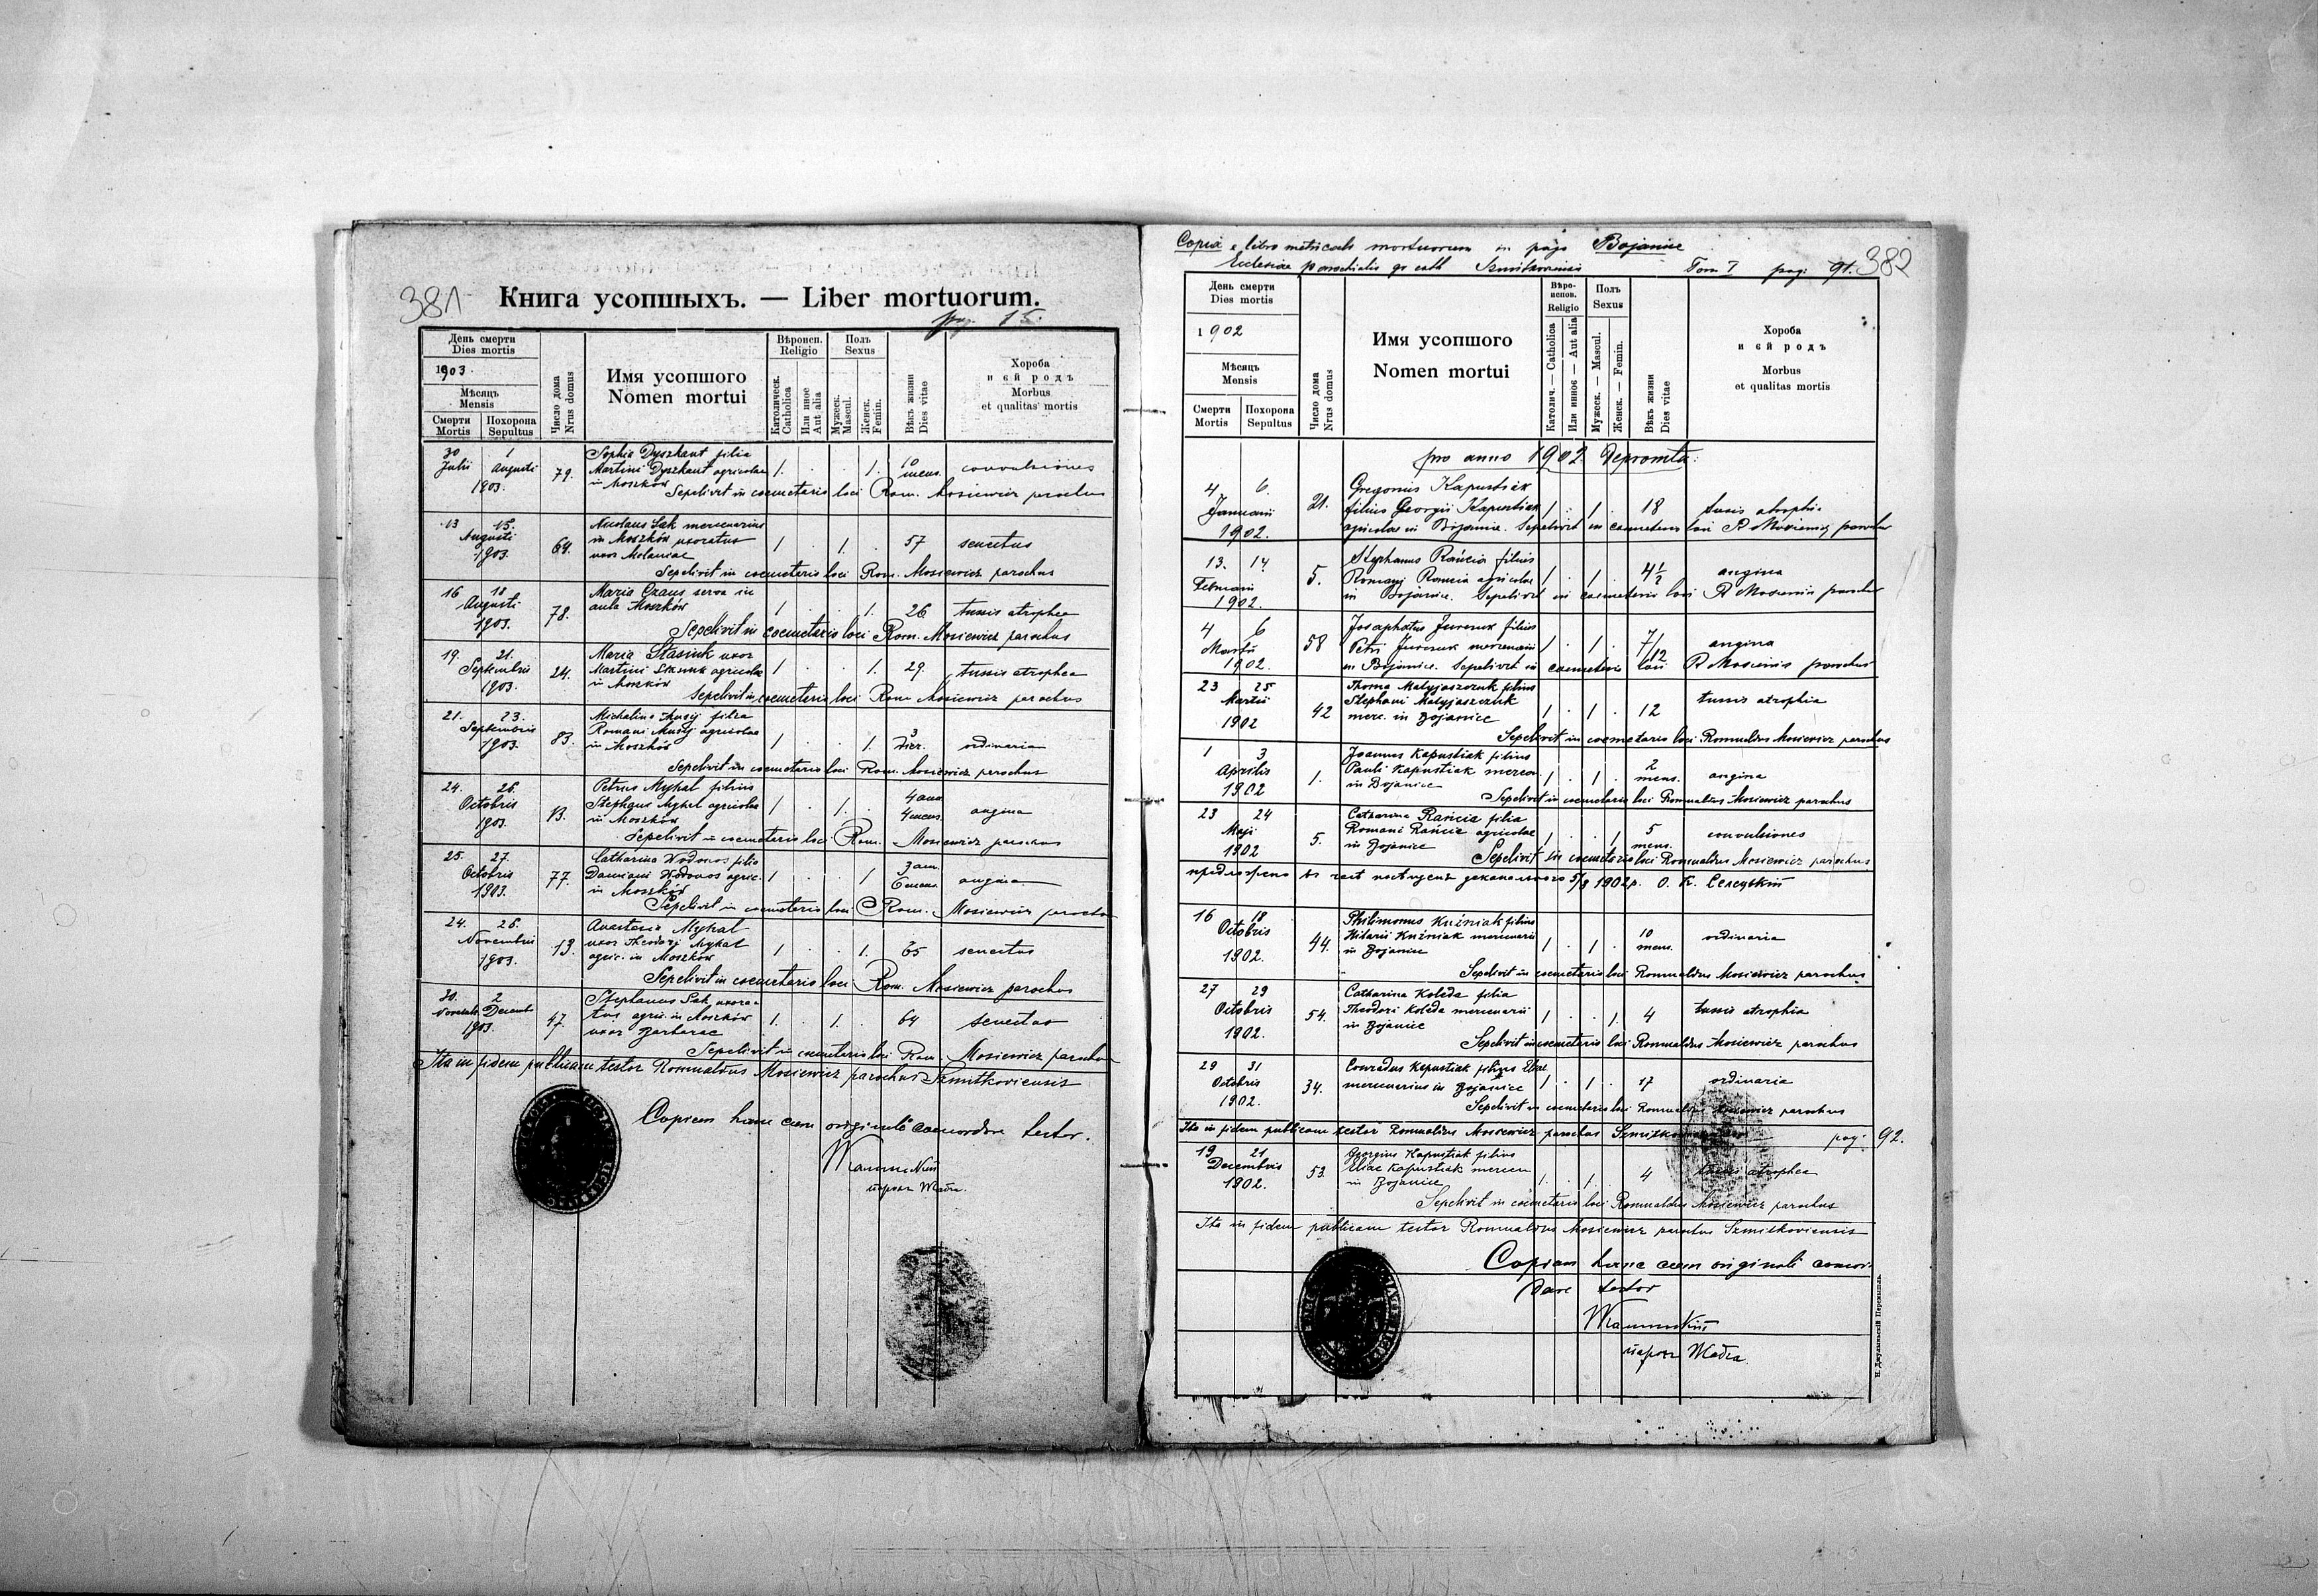 381
Книга усопшыхъ. — Liber mortuorum.
pag. 15.
День смерти
Dies mortis
1903.
Мѣсяць
Mensis
Смерти
Mortis
Похорона
Sepultus
Число дома
Nrus domus
Имя усопшого
Nomen mortui
Вѣроисп.
Religio
Католическ.
Catholica
Или иное
Aut alia
Полъ
Sexus
Мужеск.
Mascul.
Женск.
Femin.
Вѣкъ жизни
Dies vitae
Хороба
и єй родъ
Morbus
et qualitas mortis
30 1
Julii Augusti
1903.
79.
Sophia Dyszkant filia
Martini Dyszkant agricolae
in Moszków
1. . . 1.
10
mens.
convulsiones
Sepelivit in coemeterio loci Rom. Mosiewicz parochus
13 15.
Augusti
1903.
64.
Nicolaus Sak mercenarius
in Moszków uxoratus
uxor Melaniae
1 . 1. .
57
senectus
Sepelivit in coemeterio loci Rom. Mosiewicz parochus
16 18
Augusti
1903.
78.
Maria Czaus serva in
aula Moszków
1 . . 1.
26
tussis atrophea
Sepelivit in coemeterio loci Rom. Mosiewicz parochus
19. 21.
Septembris
1903.
24.
Maria Stasiuk uxor
Martini Stasiuk agricolae
in Moszków
1 . . 1.
29.
tussis atrophea
Sepelivit in coemeterio loci Rom. Mosiewicz parochus
21. 23.
Septembris
1903.
83.
Michalina filia
Romani agricolae
in Moszków
1 . . 1.
3
dier.
ordinaria
Sepelivit in coemeterio loci Rom. Mosiewicz parochus
24. 26.
Octobris
1903.
13.
Petrus Mykal filius
Stephani Mykal agricolae
in Moszków
1 . 1. .
4 ann
4 mens
angina
Sepelivit in coemeterio loci Rom. Mosiewicz parochus
25. 27.
Octobris
1903.
77.
Catharina Wodonos filia
Damiani Wodonos agric.
in Moszków
1 . . 1
3 ann.
6 mens.
angina
Sepelivit in coemeterio loci Rom. Mosiewicz parochus
24. 26.
Novembris
1903.
13.
Anastasia Mykal
uxor Theodori Mykal
agric. in Moszków
1 . . 1.
65
senectus
Sepelivit in coemeterio loci Rom. Mosiewicz parochus
30. 2
Novemb. Decemb
1903.
47.
Stephanus Sak uxora-
tus agric. in Moszków
uxor Barbarae
1. . 1. .
64
senectus
Sepelivit in coemeterio loci Rom. Mosiewicz parochus
Ita in fidem publicam testor Romualdus Mosiewicz parochus Szmitkoviensis
Copiam hanc cum originali concordare testor.
382
Copia e libro metricali mortuorum in pago Bojanice
Ecclesiae parochialis gr cath Szmitkoviensis Tom I pag: 91.
День смерти
Dies mortis
1902
Мѣсяць
Mensis
Смерти
Mortis
Похорона
Sepultus
Число дома
Nrus domus
Имя усопшого
Nomen mortui
Вѣро-
испов.
Religio
Католич. — Catholica
Или инное — Aut alia
Полъ
Sexus
Мужеск. — Mascul.
Женск. — Femin.
Вѣкъ жизни
Dies vitae
Хороба
и єй родъ
Morbus
et qualitas mortis
pro anno 1902 depromta:
4 6.
Januarii
1902.
21.
Gregorius Kapustiak
filius Georgii Kapustiak
agricolae in Bojanice. Sepelivit in coemeterio loci R Mosiewicz parochus
1 . 1 .
18
tussis atrophia
13. 14
Februarii
1902.
5.
Stephanus Rańcia filius
Romani Rancia agricolae
in Bojanice. Sepelivit in coemeterio loci R Mosiewicz parochus
1 . 1 .
4½
angina
4 6
Martii
1902.
58
Josaphatus Jurczuk filius
Petri Jurczuk mercenarii
in Bojanice. Sepelivit in coemeterio loci R Mosiewicz parochus
1 . 1 .
7/12
angina
23 25
Martii
1902
42
Thoma Matyjaszczuk filius
Stephani Matyjaszczuk
merc. in Bojanice
1 . 1 .
12
tussis atrophia
Sepelivit in coemeterio loci Romualdus Mosiewicz parochus
1 3
Aprilis
1902
1.
Joannes Kapustiak filius
Pauli Kapustiak mercen.
in Bojanice
1 . 1 .
2
mens.
angina
Sepelivit in coemeterio loci Romualdus Mosiewicz parochus
23 24
Maji
1902
5.
Catharina Rańcia filia
Romani Rańcia agricolae
in Bojanice
1 . . 1
5
mens.
convulsiones
Sepelivit in coemeterio loci Romualdus Mosiewicz parochus
5/9 1902 р. О. К. Селецький
16 18
Octobris
1902.
44.
Philimonus Kuźniak filius
Hilarii Kuźniak mercenarii
in Bojanice
1 . 1 .
10
mens.
ordinaria
Sepelivit in coemeterio loci Romualdus Mosiewicz parochus
27 29
Octobris
1902.
54.
Catharina Koleda filia
Theodori Koleda mercenarii
in Bojanice
1 . . 1.
4
tussis atrophia
Sepelivit in coemeterio loci Romualdus Mosiewicz parochus
29 31
Octobris
1902.
34.
Conradus Kapustiak filius Eliae
mercenarius in Bojanice
1 . 1 .
17
ordinaria
Sepelivit in coemeterio loci Romualdus Mosiewicz parochus
Ita in fidem publicam testor Romualdus Mosiewicz parochus pag: 92.
19 21
Decembris
1902.
53
Georgius Kapustiak filius
Eliae Kapustiak mercen
in Bojanice
1. . 1. .
4
tussis atrophea
Sepelivit in coemeterio loci Romualdus Mosiewicz parochus
Ita in fidem publicam testor Romualdus Mosiewicz parochus Szmitkoviensis
Copiam hanc cum originali concor-
dare testor